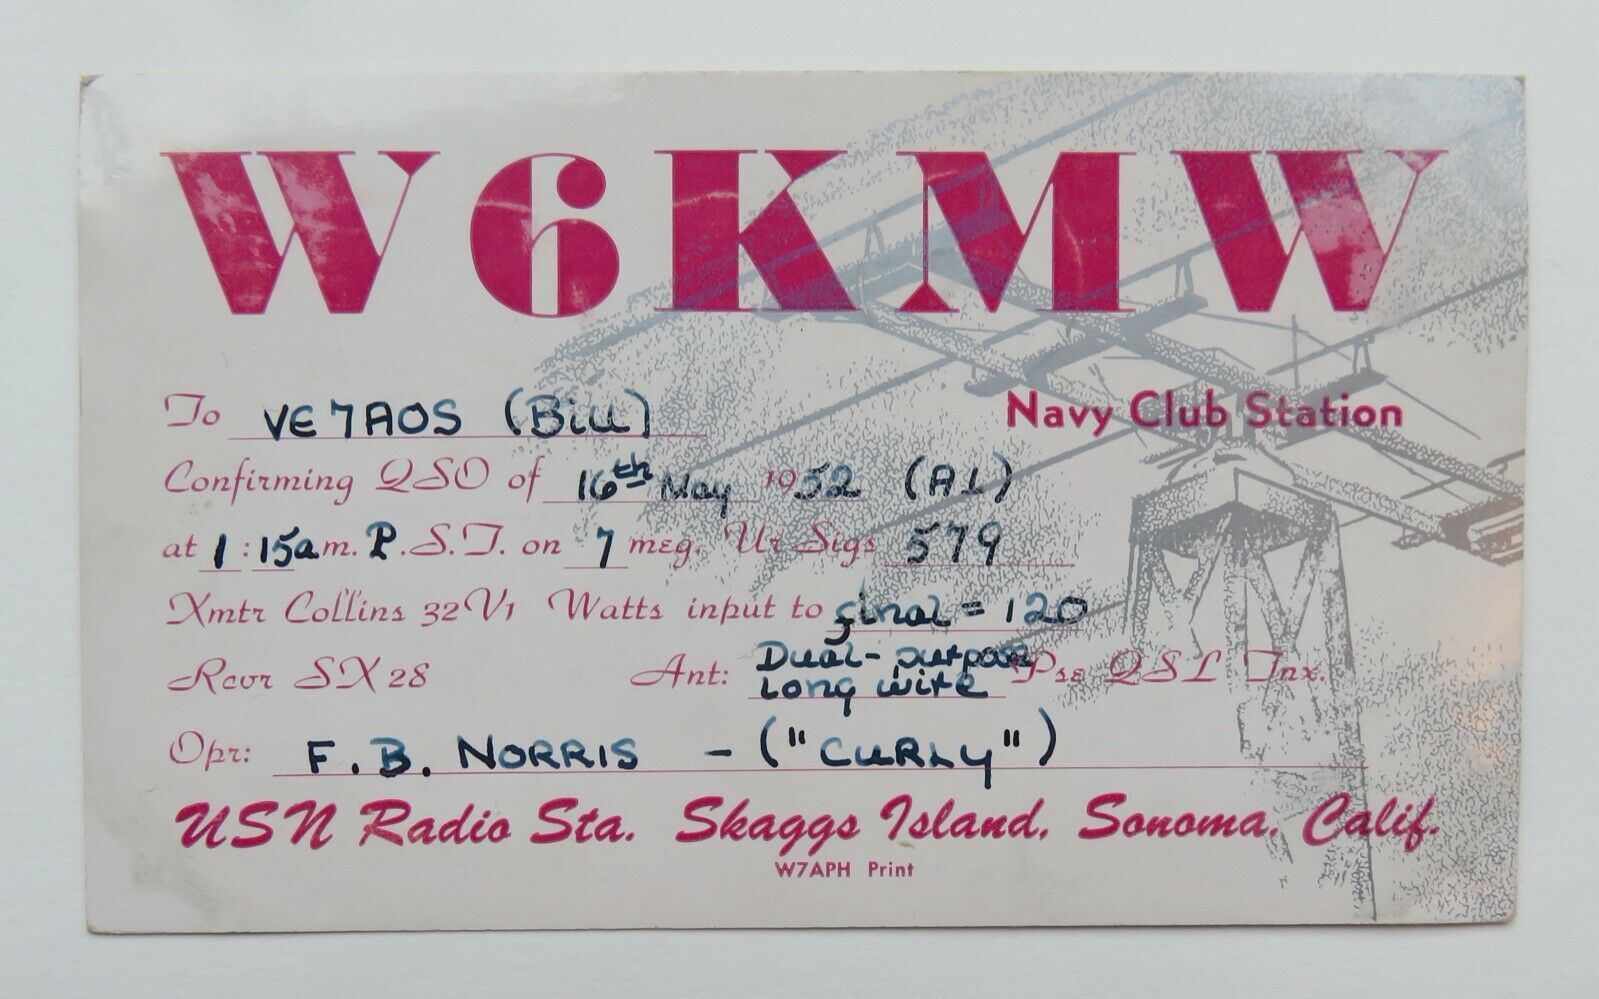 W6KMW
To VE7AOS (Bill) Navy Club Station
Confirming QSO of 16th May 1952 (AL)
at 1:15 a m. P.S.T. on 7 meg. Ur Sigs 579
Xmtr Collins 32V1 Watts input to final = 120
Rcvr SX28 Ant: Dual-purpose long wire Pse QSL Tnx.
Opr: F. B. NORRIS - ("CURLY")
USN Radio Sta. Skaggs Island, Sonoma, Calif.
W7APH Print